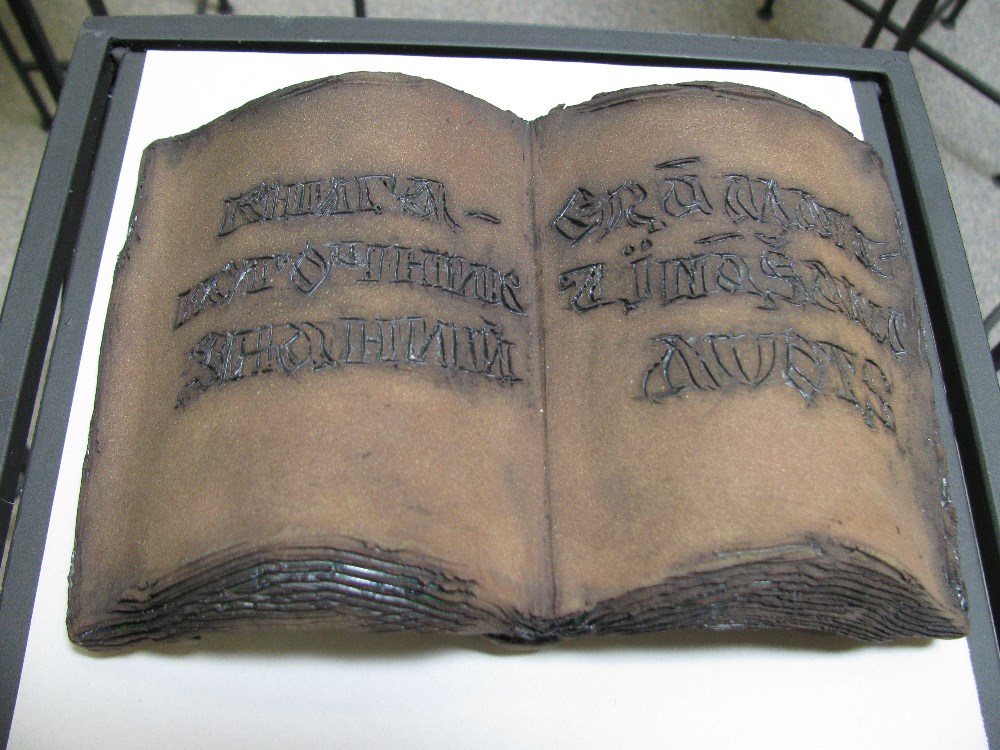 книга -
источник
знаний
Grāmata -
zināšanu
avots